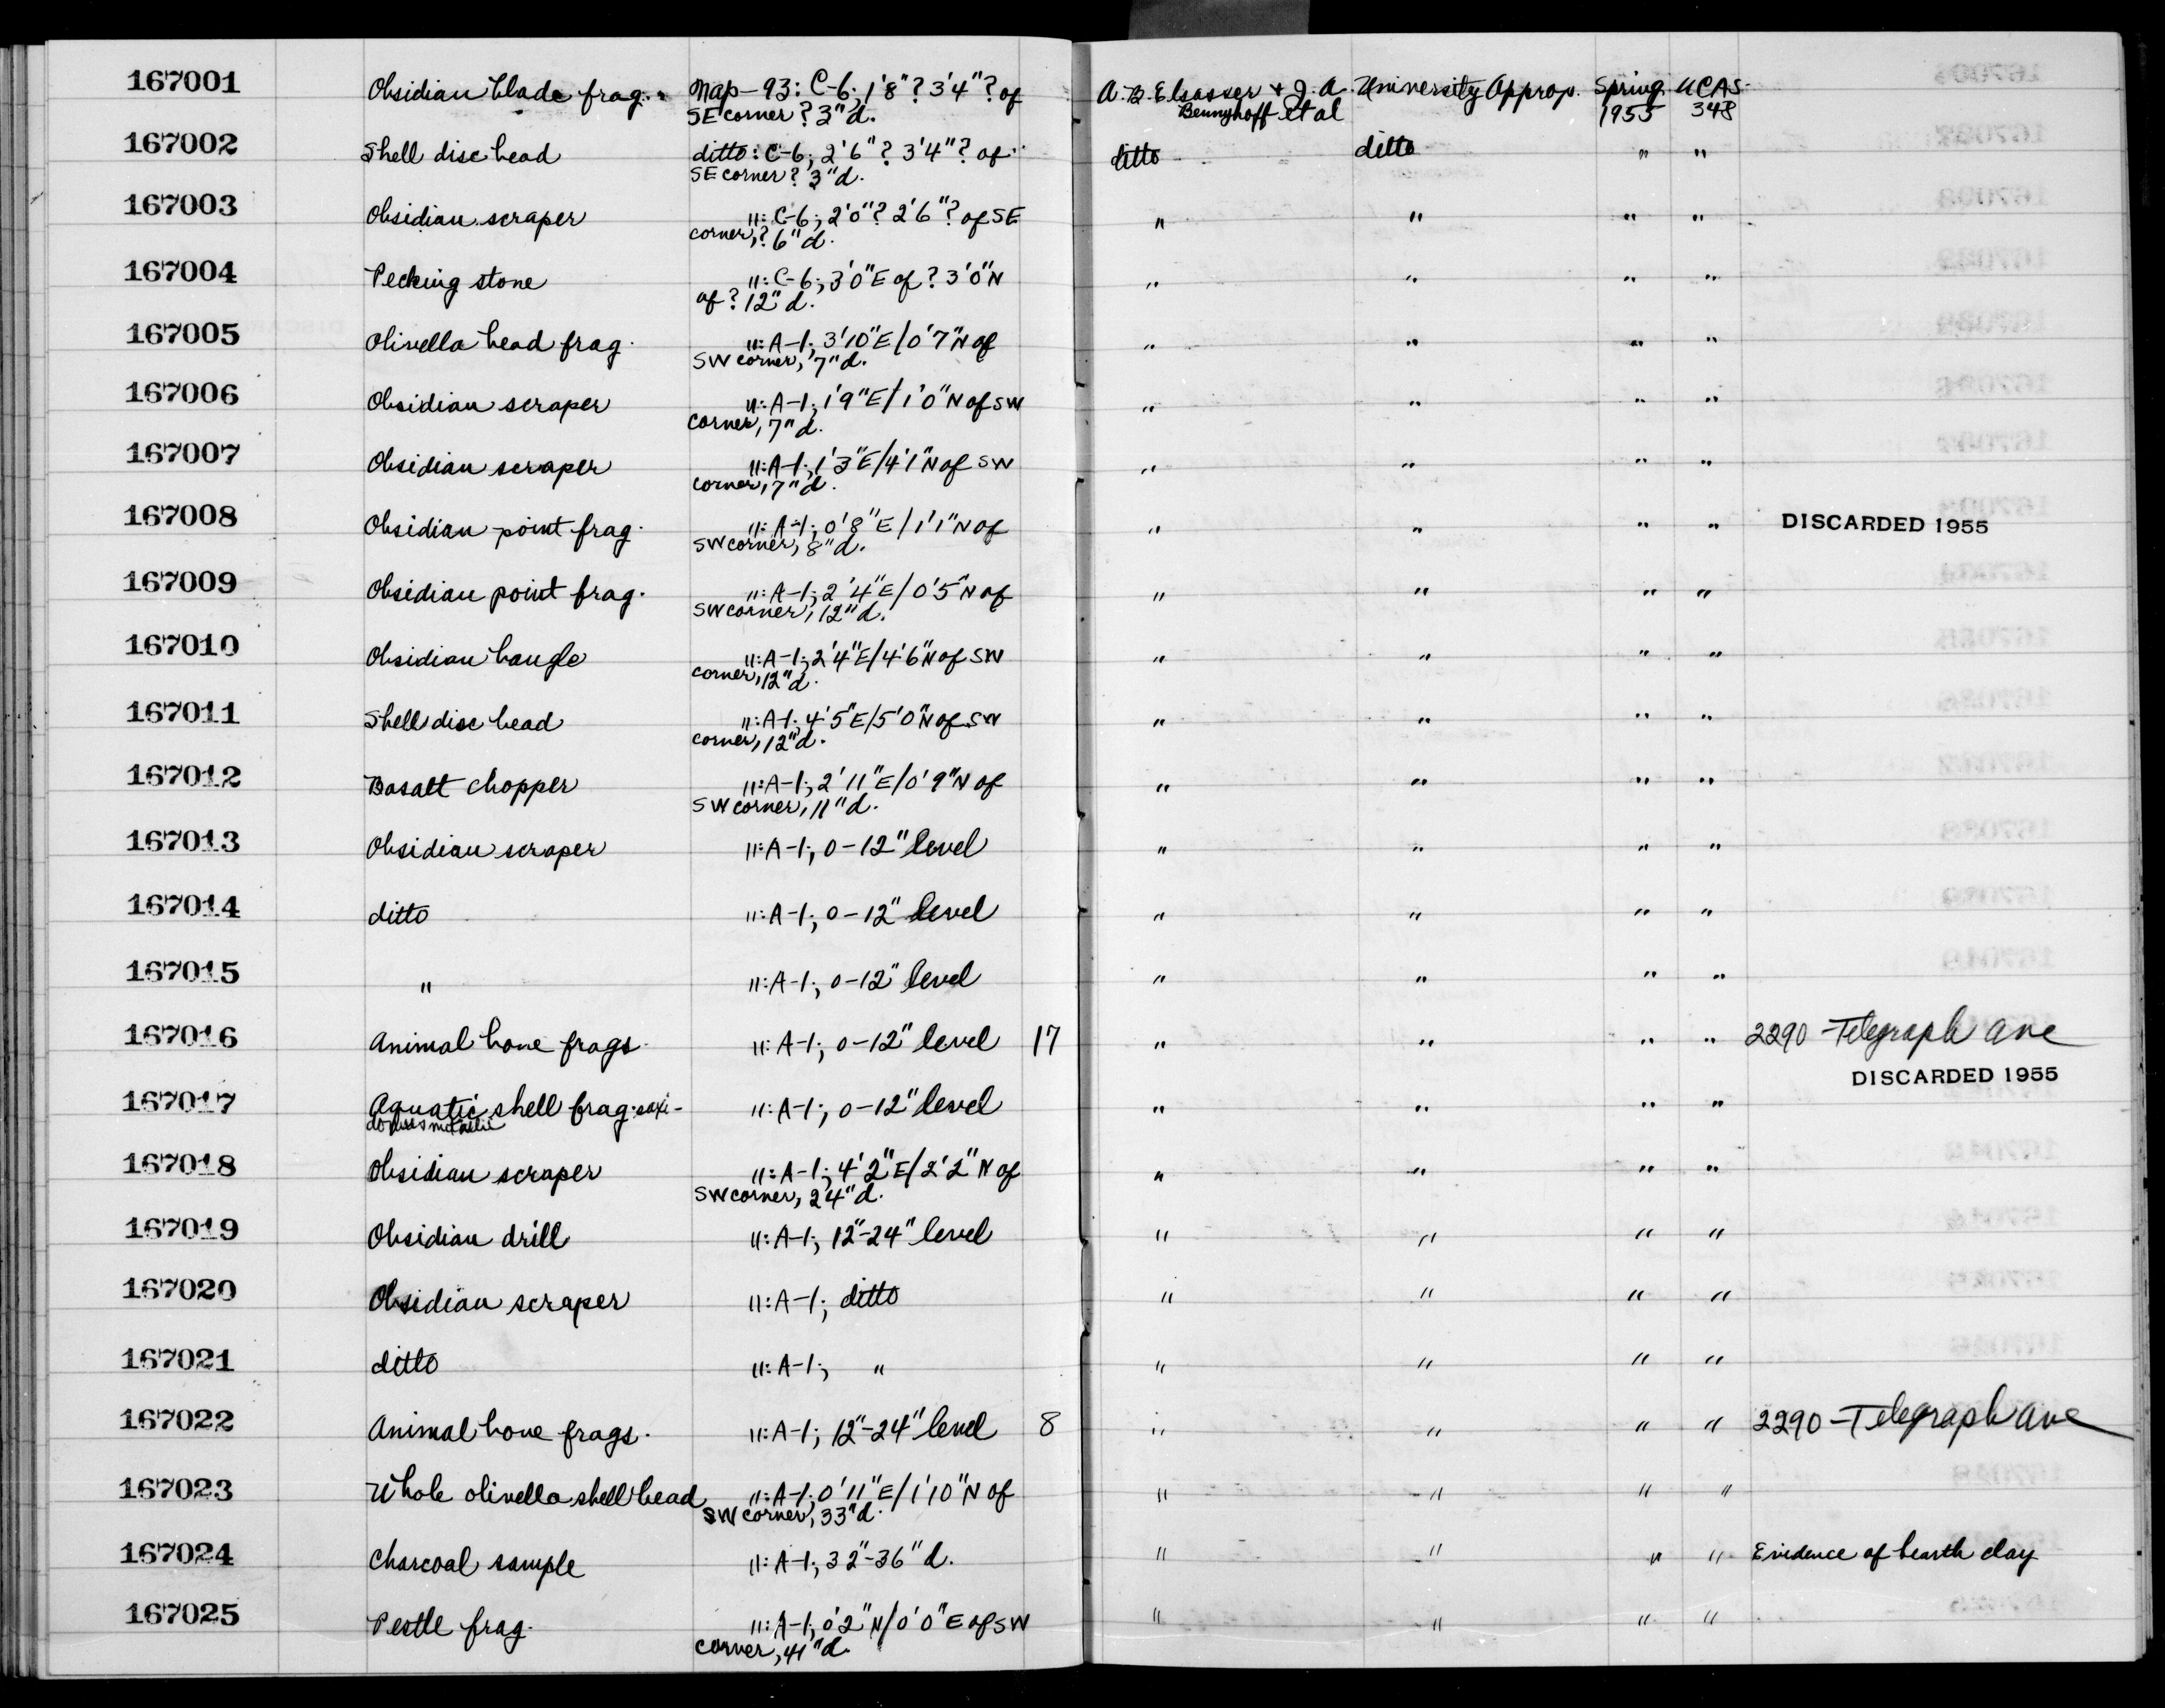 167001 Obsidian blade frag. Map-93: C-6; 1'8"? 3'4"? of A. B. Elsasser & J. A. University Approp. Spring UCAS-
SE corner? 3"d. Bennyhoff et al 1955 348
167002 Shell disc bead ditto: C-6; 2'6"? 3'4"? of ditto ditto " "
SE corner? 3"d.
167003 Obsidian scraper ": C-6; 2'0"? 2'6"? of SE " " " "
corner,? 6"d.
167004 Pecking stone ": C-6; 3'0"E of? 3'0"N " " " "
of? 12"d.
167005 Olivella bead frag. ": A-1; 3'10"E/0'7"N of " " " "
SW corner, 7"d.
167006 Obsidian scraper ": A-1; 1'9"E/1'0"N of SW " " " "
corner, 7"d.
167007 Obsidian scraper ": A-1; 1'3"E/4'1"N of SW " " " "
corner, 7"d.
167008 Obsidian point frag. ": A-1; 0'8"E/1'1"N of " " " " DISCARDED 1955
SW corner, 8"d.
167009 Obsidian point frag. ": A-1; 2'4"E/0'5"N of " " " "
SW corner, 12"d.
167010 Obsidian bangle ": A-1; 2'4"E/4'6"N of SW " " " "
corner, 12"d.
167011 Shell disc bead ": A-1; 4'5"E/5'0"N of SW " " " "
corner, 12"d.
167012 Basalt chopper ": A-1; 2'11"E/0'9"N of " " " "
SW corner, 11"d.
167013 Obsidian scraper ": A-1; 0-12" level " " " "
167014 ditto ": A-1; 0-12" level " " " "
167015 " ": A-1; 0-12" level " " " "
167016 Animal bone frags. ": A-1; 0-12" level 17 " " " " 2290-Telegraph Ave
DISCARDED 1955
167017 Aquatic shell frag. saxi- ": A-1; 0-12" level " " " "
167018 Obsidian scraper ": A-1; 4'2"E/2'2"N of " " " "
SW corner, 24"d.
167019 Obsidian drill ": A-1; 12"-24" level " " " "
167020 Obsidian scraper ": A-1; ditto " " " "
167021 ditto ": A-1; " " " " "
167022 Animal bone frags. ": A-1; 12"-24" level 8 " " " " 2290-Telegraph Ave
167023 Whole olivella shell bead ": A-1; 0'11"E/1'10"N of " " " "
SW corner, 33"d.
167024 Charcoal sample ": A-1; 32"-36"d. " " " " Evidence of hearth clay
167025 Pestle frag. ": A-1; 0'2"N/0'0"E of SW " " " "
corner, 41"d.